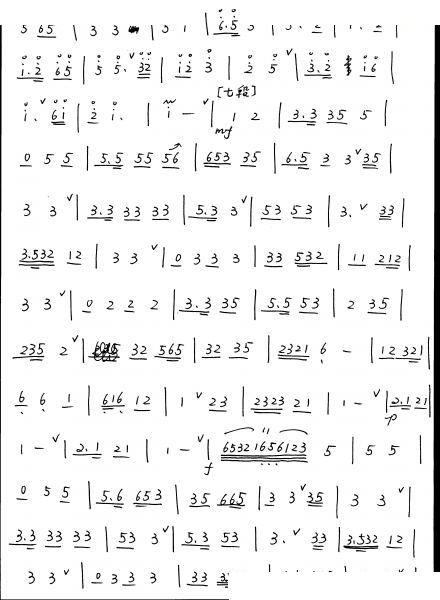 5 65 | 3 3 | 5 1 | 6.5 3
1.2 65 | 5 5. ˅ 32 | 12 3 | 2 5 ˅ | 3.2 16 |
1. ˅ 61 | 2 1. | 1 − ˅ | [七段] 1 2 | 3.3 35 5 |
mf
0 5 5 | 5.5 55 56 | 653 35 | 6.5 3 3 ˅ 35 |
3 3 ˅ | 3.3 33 33 | 5.3 3 ˅ | 53 53 | 3. ˅ 33 |
3.532 12 | 3 3 ˅ | 0 3 3 3 | 33 532 | 11 212 |
3 3 ˅ | 0 2 2 2 | 3.3 35 | 5.5 53 | 2 35 |
235 2 ˅ | 32 565 | 32 35 | 2321 6 − | 12 321 |
6 6 1 | 616 12 | 1 ˅ 23 | 2323 21 | 1 − ˅ | 2.1 21 |
p
1 − ˅ | 2.1 21 | 1 − ˅ | 65321656123 5 | 5 5 |
f
0 5 5 | 5.6 653 | 35 665 | 3 3 ˅ 35 | 3 3 ˅ |
3.3 33 33 | 53 3 ˅ | 5.3 53 | 3. ˅ 33 | 3.532 12 |
3 3 ˅ | 0 3 3 3 | 33